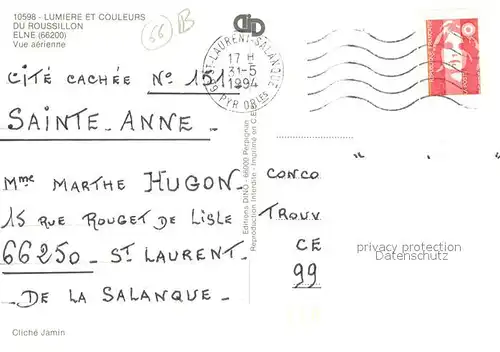 10598 - LUMIERE ET COULEURS
DU ROUSSILLON
ELNE (66200)
Vue aérienne
66 B
DID
ST-LAURENT-SALANQUE
17 H
31-5
1994
PYR ORles
CITÉ CACHÉE N° 151
SAINTE-ANNE
Mme MARTHE HUGON
15 RUE ROUGET DE LISLE
66250 ST LAURENT
DE LA SALANQUE
Cliché Jamin
Editions DINO - 66000 Perpignan
Reproduction Interdite - Imprimé en C.E.
CONCO
TROUV
CE
99
privacy protection
Datenschutz